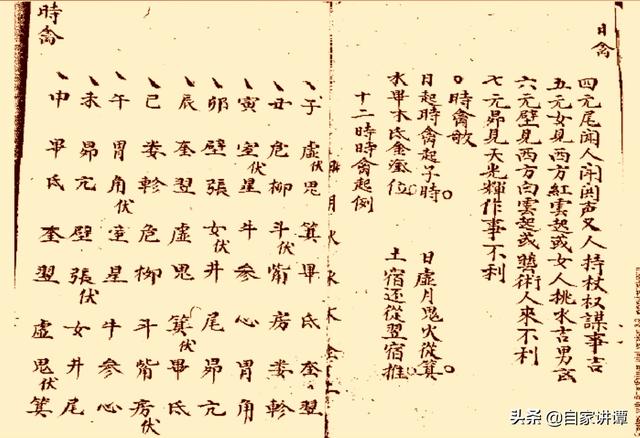 日禽
四元尾闹人闹闹声又人持杖权謀事吉
五元女見西方紅雲起或女人挑水吉男
六元壁見西方白雲起或藝術人來不利
七元昴見天光輝作事不利
○時禽
日起時禽起子時○ 日虛月鬼火從箕
水畢木氐金奎位○ 土宿还從翌宿推
十二時時禽起例
日月火水木金土
子虛鬼箕畢氐奎翌
丑危柳斗伏觜房婁軫
寅室伏星牛參心胃角
卯壁張女伏井尾昴亢
辰奎翌虛鬼箕伏畢氐
巳婁軫危柳斗觜房伏
午胃角伏室星牛參心
未昴亢壁張伏女井尾
申畢氐奎翌虛鬼伏箕
時禽
头条 @自家讲谭